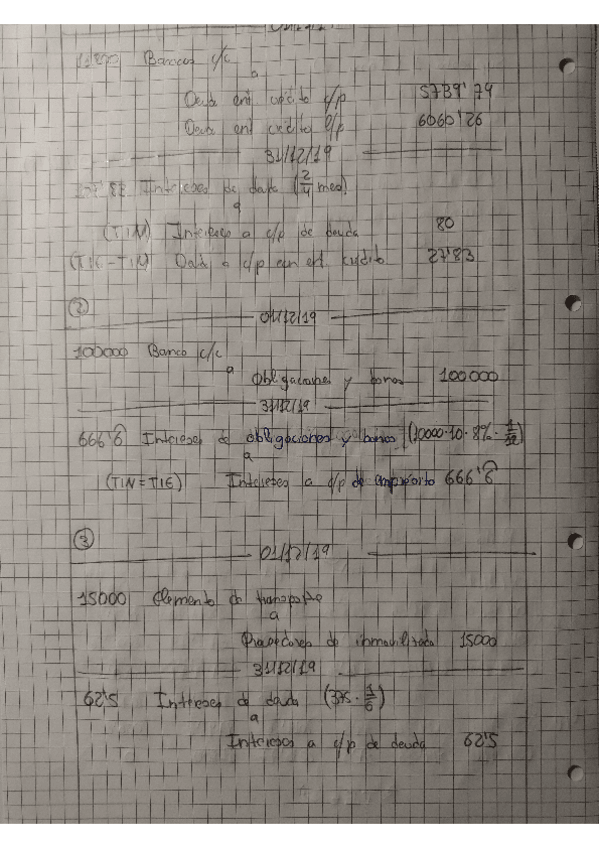 Bancos c/c
a
Deuda ent crédito c/p 5739'74
Deuda ent crédito l/p 6060'26
31/12/19
Intereses de deuda (2/4 mes)
a
(TIN) Intereses a c/p de deuda 80
(TIE-TIN) Deuda a c/p con ent. crédito 27'83
②
01/12/19
100000 Banco c/c
a
Obligaciones y bonos 100000
31/12/19
666'6 Intereses de obligaciones y bonos (10000·10·8%·1/12)
a
(TIN=TIE) Intereses a c/p de empréstito 666'6
③
01/12/19
15000 Elemento de transporte
a
Proveedores de inmovilizado 15000
31/12/19
62'5 Intereses de deuda (375·1/6)
a
Intereses a c/p de deuda 62'5